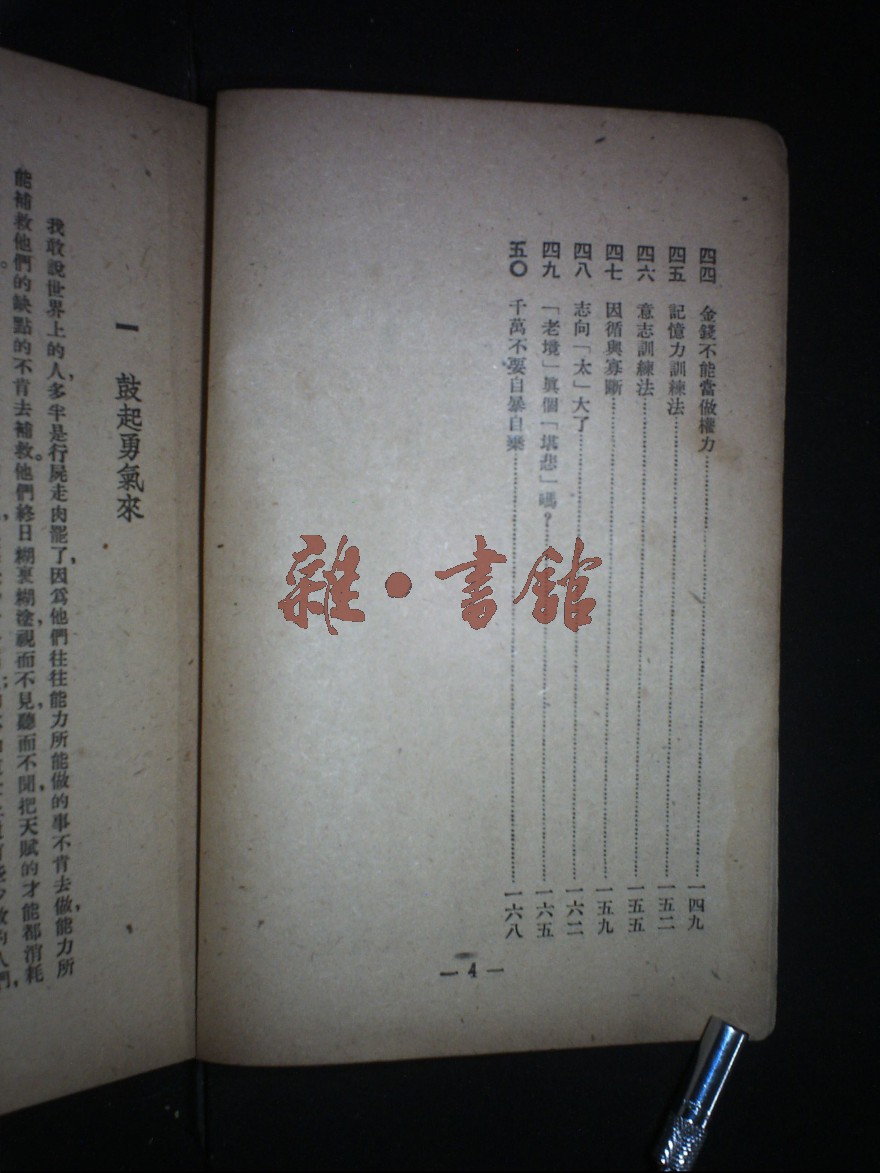 四四 金錢不能當做權力……一四九
四五 記憶力訓練法……一五二
四六 意志訓練法……一五五
四七 因循與寡斷……一五九
四八 志向「太」大了……一六二
四九 「老境」眞個「堪悲」嗎？……一六五
五〇 千萬不要自暴自棄……一六八
—4—
雜•書館
一 鼓起勇氣來
我敢說世界上的人，多半是行屍走肉罷了，因爲他們往往能力所能做的事不肯去做，能力所
能補救他們的缺點的不肯去補救。他們終日糊裏糊塗，視而不見，聽而不聞，把天賦的才能都消耗